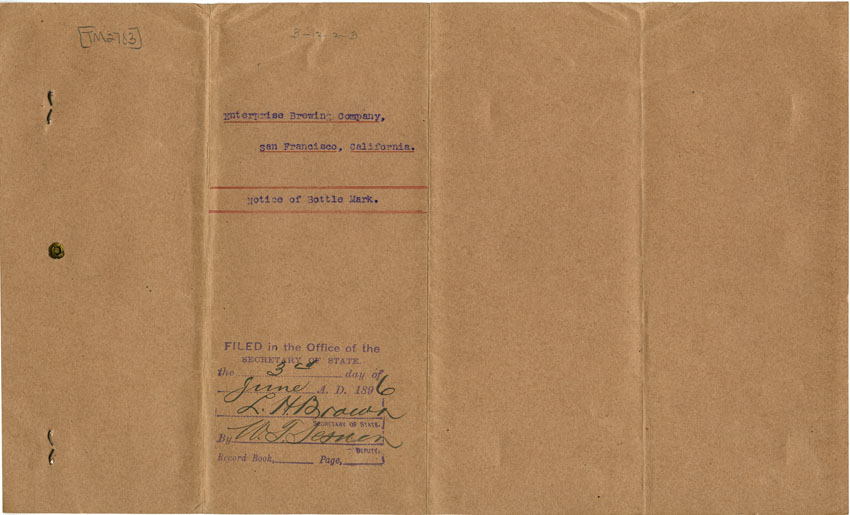 [TM2783]
3-2-2-3
Enterprise Brewing Company,
San Francisco, California.
Notice of Bottle Mark.
FILED in the Office of the
SECRETARY OF STATE.
the 3rd day of
June A. D. 1896
L. H. Brown
SECRETARY OF STATE.
By W. T.
DEPUTY.
Record Book, Page,